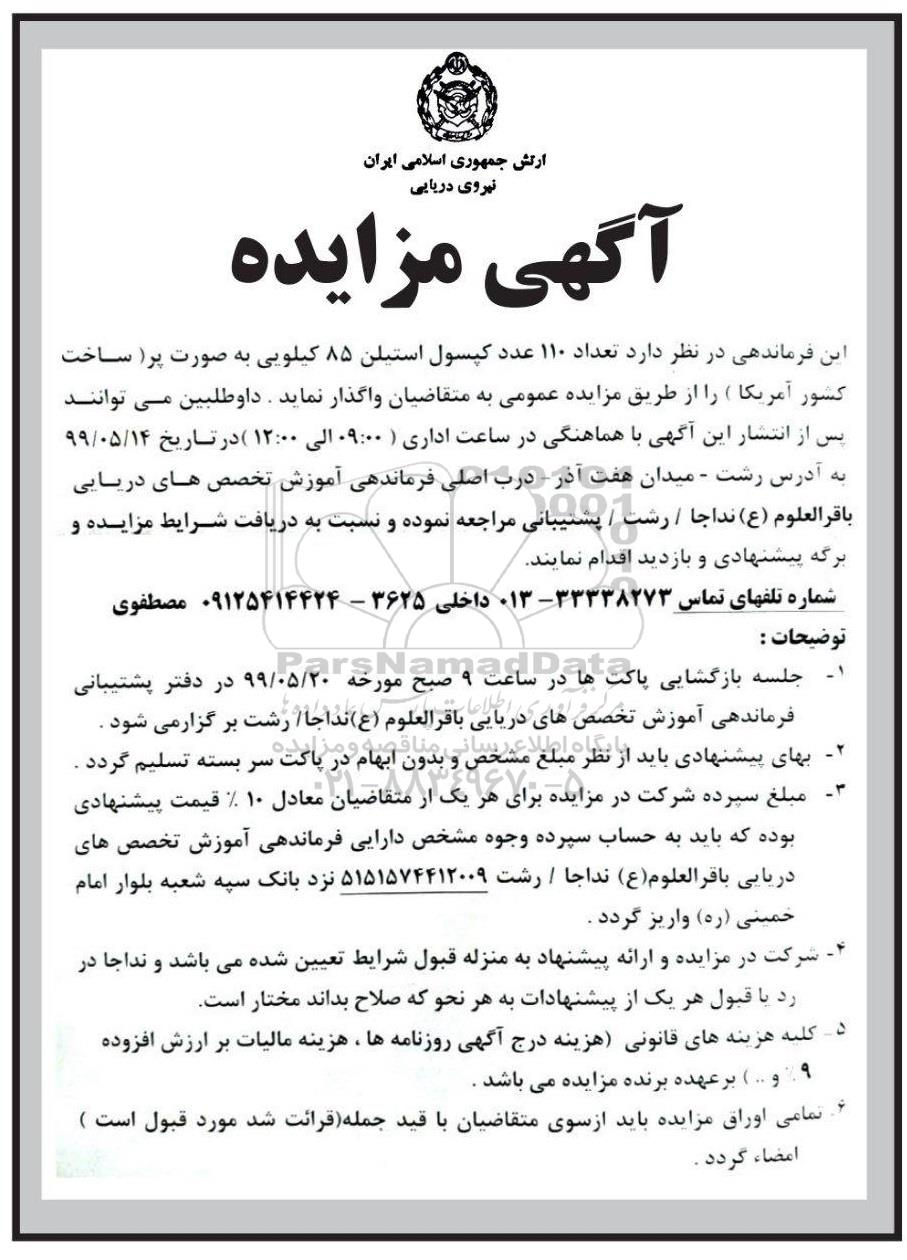 ارتش جمهوری اسلامی ایران
نیروی دریایی
آگهی مزایده
این فرماندهی در نظر دارد تعداد ۱۱۰ عدد کپسول استیلن ۸۵ کیلویی به صورت پر( ساخت
کشور آمریکا ) را از طریق مزایده عمومی به متقاضیان واگذار نماید . داوطلبین می توانند
پس از انتشار این آگهی با هماهنگی در ساعت اداری ( ۰۹:۰۰ الی ۱۲:۰۰ )در تاریخ ۹۹/۰۵/۱۴
به آدرس رشت - میدان هفت آذر - درب اصلی فرماندهی آموزش تخصص های دریایی
باقرالعلوم (ع) نداجا / رشت / پشتیبانی مراجعه نموده و نسبت به دریافت شرایط مزایده و
برگه پیشنهادی و بازدید اقدام نمایند.
شماره تلفهای تماس ۳۳۳۳۸۲۷۳ - ۰۱۳ داخلی ۳۶۲۵ - ۰۹۱۲۵۴۱۴۴۲۴ مصطفوی
توضیحات :
۱- جلسه بازگشایی پاکت ها در ساعت ۹ صبح مورخه ۹۹/۰۵/۲۰ در دفتر پشتیبانی
فرماندهی آموزش تخصص های دریایی باقرالعلوم (ع)نداجا/ رشت بر گزارمی شود .
۲- بهای پیشنهادی باید از نظر مبلغ مشخص و بدون ابهام در پاکت سر بسته تسلیم گردد .
۳- مبلغ سپرده شرکت در مزایده برای هر یک از متقاضیان معادل ۱۰ ٪ قیمت پیشنهادی
بوده که باید به حساب سپرده وجوه مشخص دارایی فرماندهی آموزش تخصص های
دریایی باقرالعلوم(ع) نداجا / رشت ۵۱۵۱۵۷۴۴۱۲۰۰۹ نزد بانک سپه شعبه بلوار امام
خمینی (ره) واریز گردد .
۴- شرکت در مزایده و ارائه پیشنهاد به منزله قبول شرایط تعیین شده می باشد و نداجا در
رد یا قبول هر یک از پیشنهادات به هر نحو که صلاح بداند مختار است.
۵- کلیه هزینه های قانونی (هزینه درج آگهی روزنامه ها ، هزینه مالیات بر ارزش افزوده
۹ ٪ و .. ) برعهده برنده مزایده می باشد .
۶- تمامی اوراق مزایده باید ازسوی متقاضیان با قید جمله(قرائت شد مورد قبول است )
امضاء گردد .
ParsNamadData
مرکز فرآوری اطلاعات پارس نماد داده ها
پایگاه اطلاع رسانی مناقصه و مزایده
۰۲۱-۸۸۳۴۹۶۷۰-۵